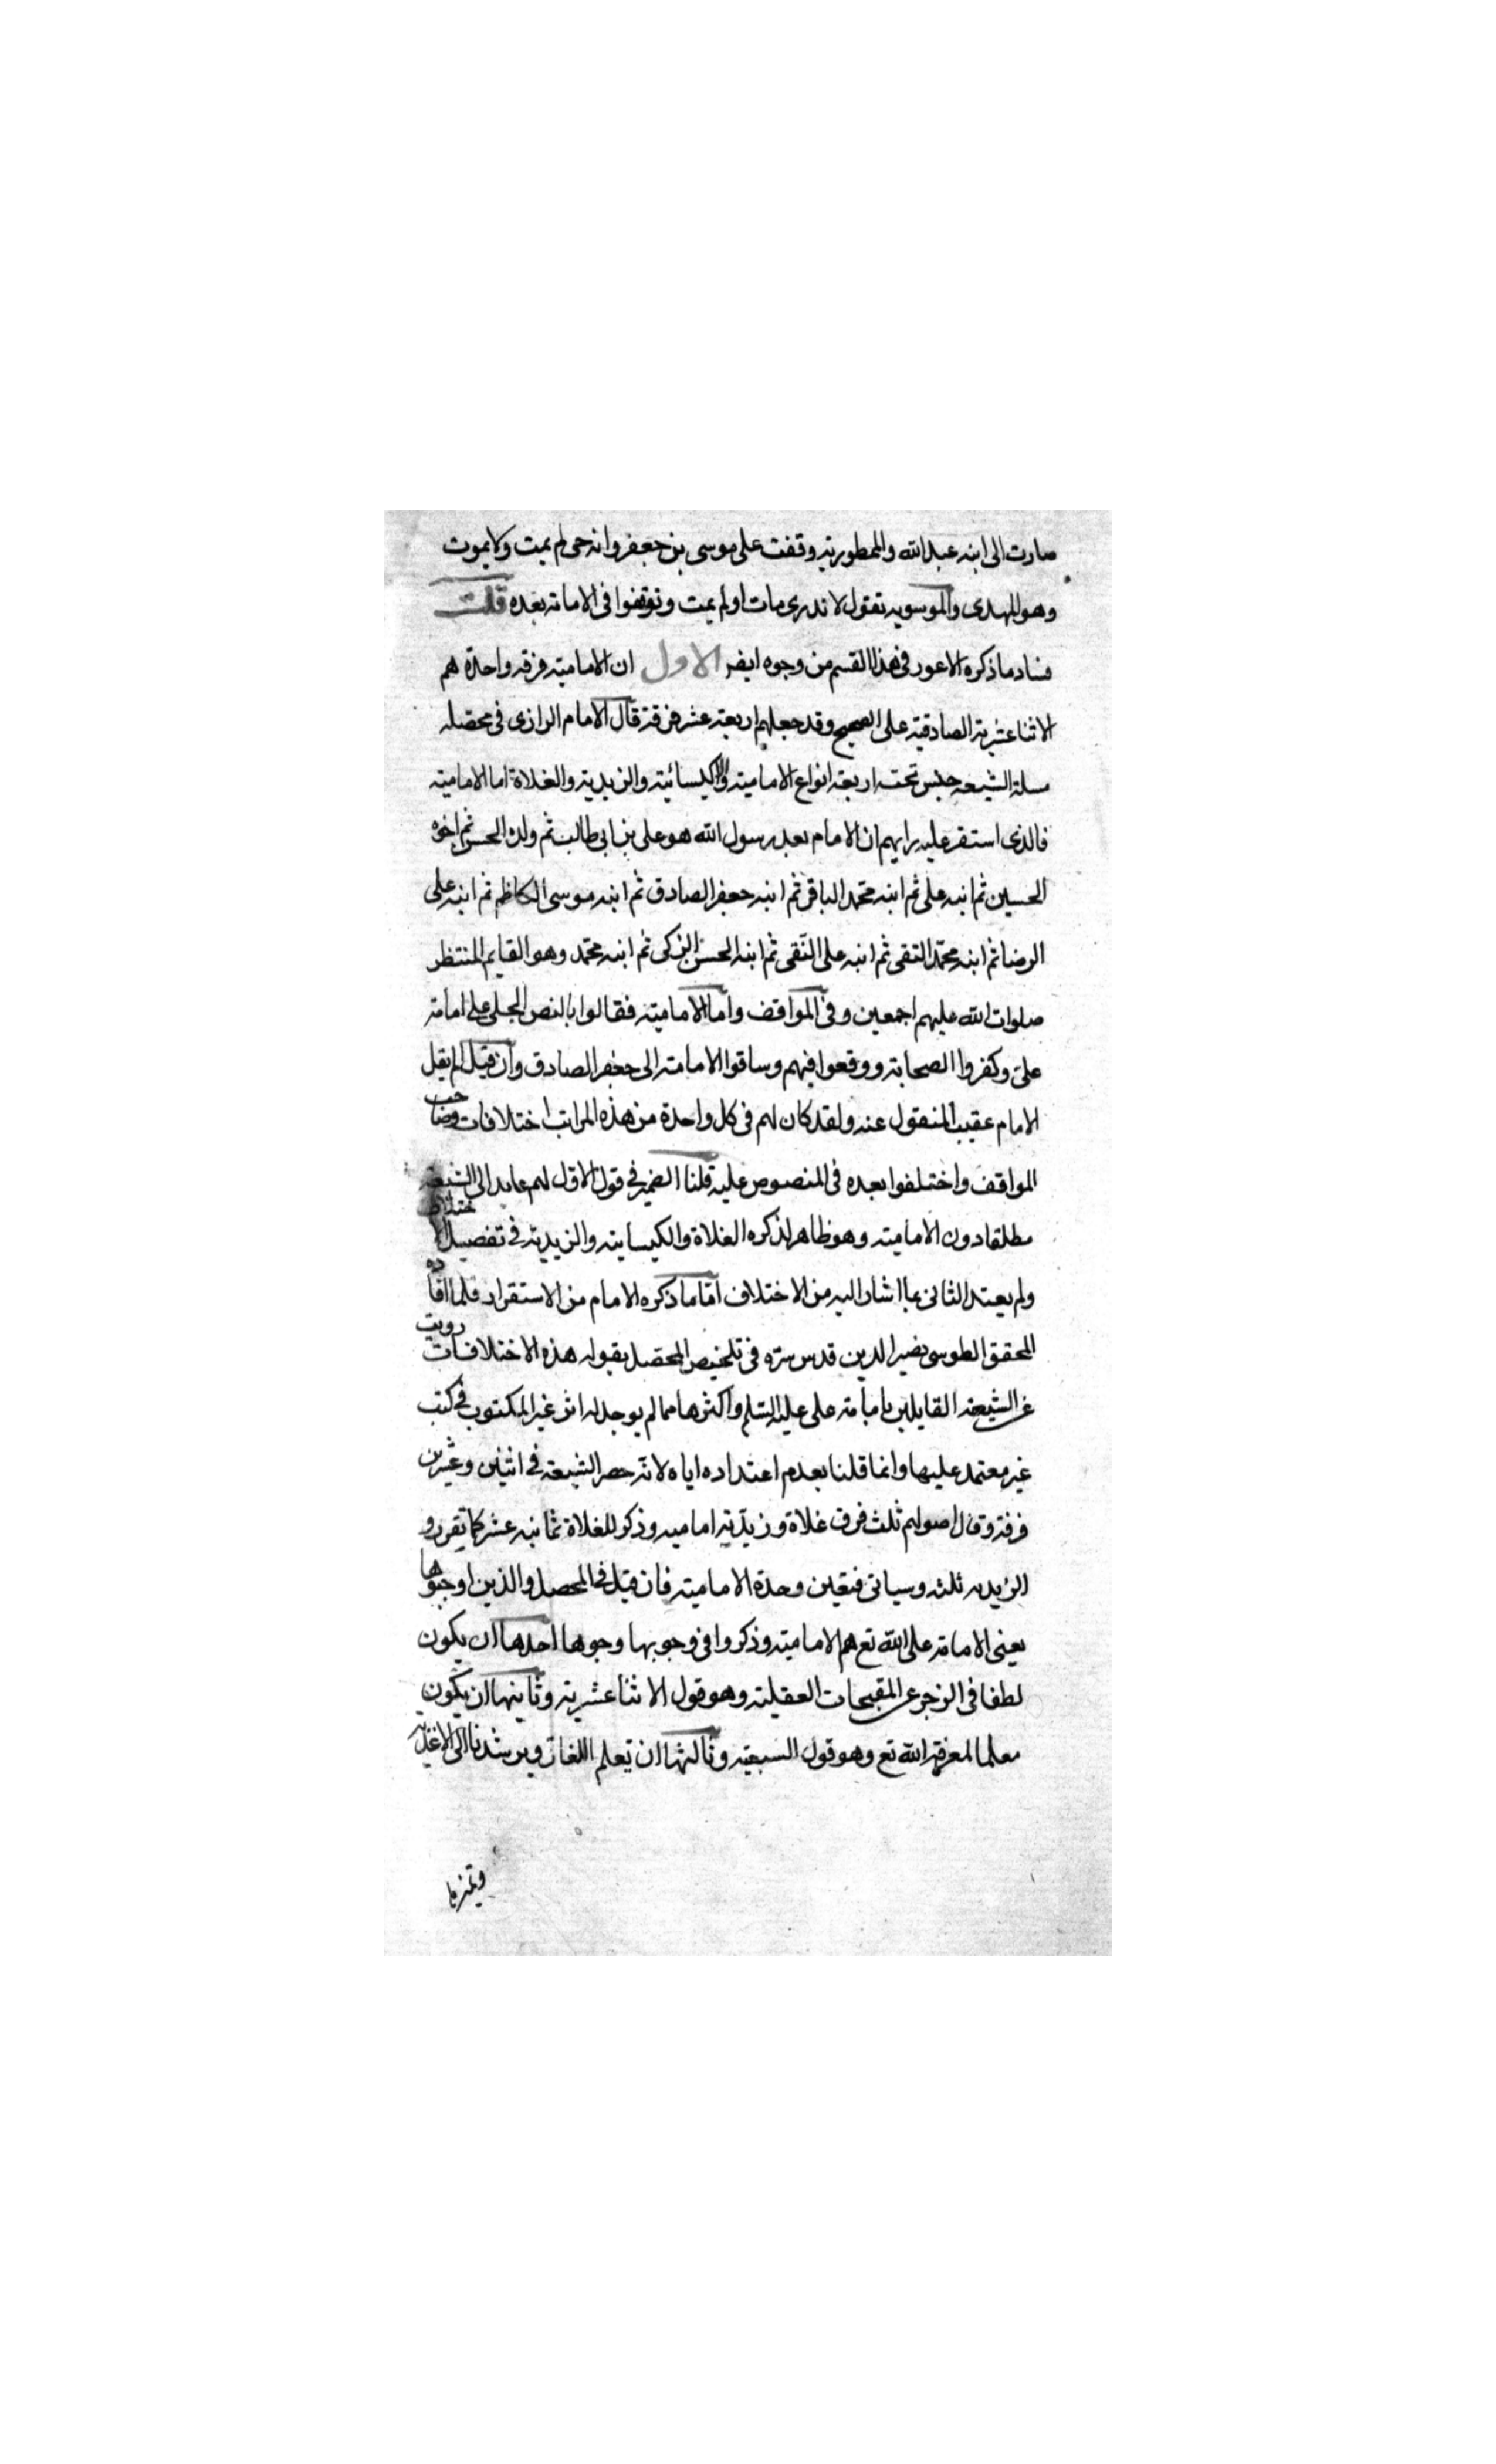 صارت الى ابنه عبد الله والممطورية وقفت على موسى بن جعفر وانه حى لم يمت ولا يموت
وهو المهدى والموسويه تقول لا ندرى مات او لم يمت وتوقفوا فى الامامة بعده قلت
فساد ما ذكره الاعور فى هذا القسم من وجوه ايضا الاول ان الامامية فرقه واحدة هم
الاثنا عشرية الصادقية على الصحيح وقد جعلهم اربعة عشر فرقة قال الامام الرازى فى محصله
مسلة الشيعه جنس تحته اربعة انواع الامامية والكيسائية والزيدية والغلاة اما الامامية
فالذى استقر عليه رايهم ان الامام بعد رسول الله هو على بن ابى طالب ثم ولده الحسن ثم اخوه
الحسين ثم ابنه على ثم ابنه محمد الباقر ثم ابنه جعفر الصادق ثم ابنه موسى الكاظم ثم ابنه على
الرضا ثم ابنه محمد التقى ثم ابنه على النقى ثم ابنه الحسن الزكى ثم ابنه محمد وهو القايم المنتظر
صلوات الله عليهم اجمعين وفى المواقف واما الامامية فقالوا بالنص الجلى على امامة
على وكفروا الصحابة ووقعوا فيهم وساقوا الامامة الى جعفر الصادق وان قيل لم يقل
الامام عقيب المنقول عنه ولقد كان لهم فى كل واحدة من هذه المراتب اختلافات وصاحب
المواقف واختلفوا بعده فى المنصوص عليه قلنا الضمير فى قول الاول لهم عايد الى الشيعة
مطلقا دون الامامية وهو ظاهر لذكره الغلاة والكيسانية والزيدية فى تفصيل الاختلاف
ولم يعتد الثانى بما اشار اليه من الاختلاف اما ما ذكره الامام من الاستقرار فلما افاده
المحقق الطوسى نصير الدين قدس سره فى تلخيص المحصل بقوله هذه الاختلافات رويت
عن الشيعة القايلين بامامة على عليه السلم واكثرها مما لم يوجد له اثر غير المكتوب فى كتب
غير معتمد عليها وانما قلنا بعدم اعتداده اياه لانه حصر الشيعة فى اثنين وعشرين
فرقة وقال اصولهم ثلث فرق غلاة وزيدية امامية وذكر للغلاة ثمانيه عشر كما تقرر و
الزيديه ثلثه وسياتى فتعين وحدة الامامية فان قيل فى المحصل والذين اوجبوها
يعنى الامامة على الله تع هم الامامية وذكروا فى وجوبها وجوها احدها ان يكون
لطفا فى الزجر عن المقبحات العقلية وهو قول الاثنا عشرية وثانيها ان يكون
معلما لمعرفة الله تع وهو قول السبعية وثالثها ان تعلم اللغات ويرشدنا الى الاغذيه